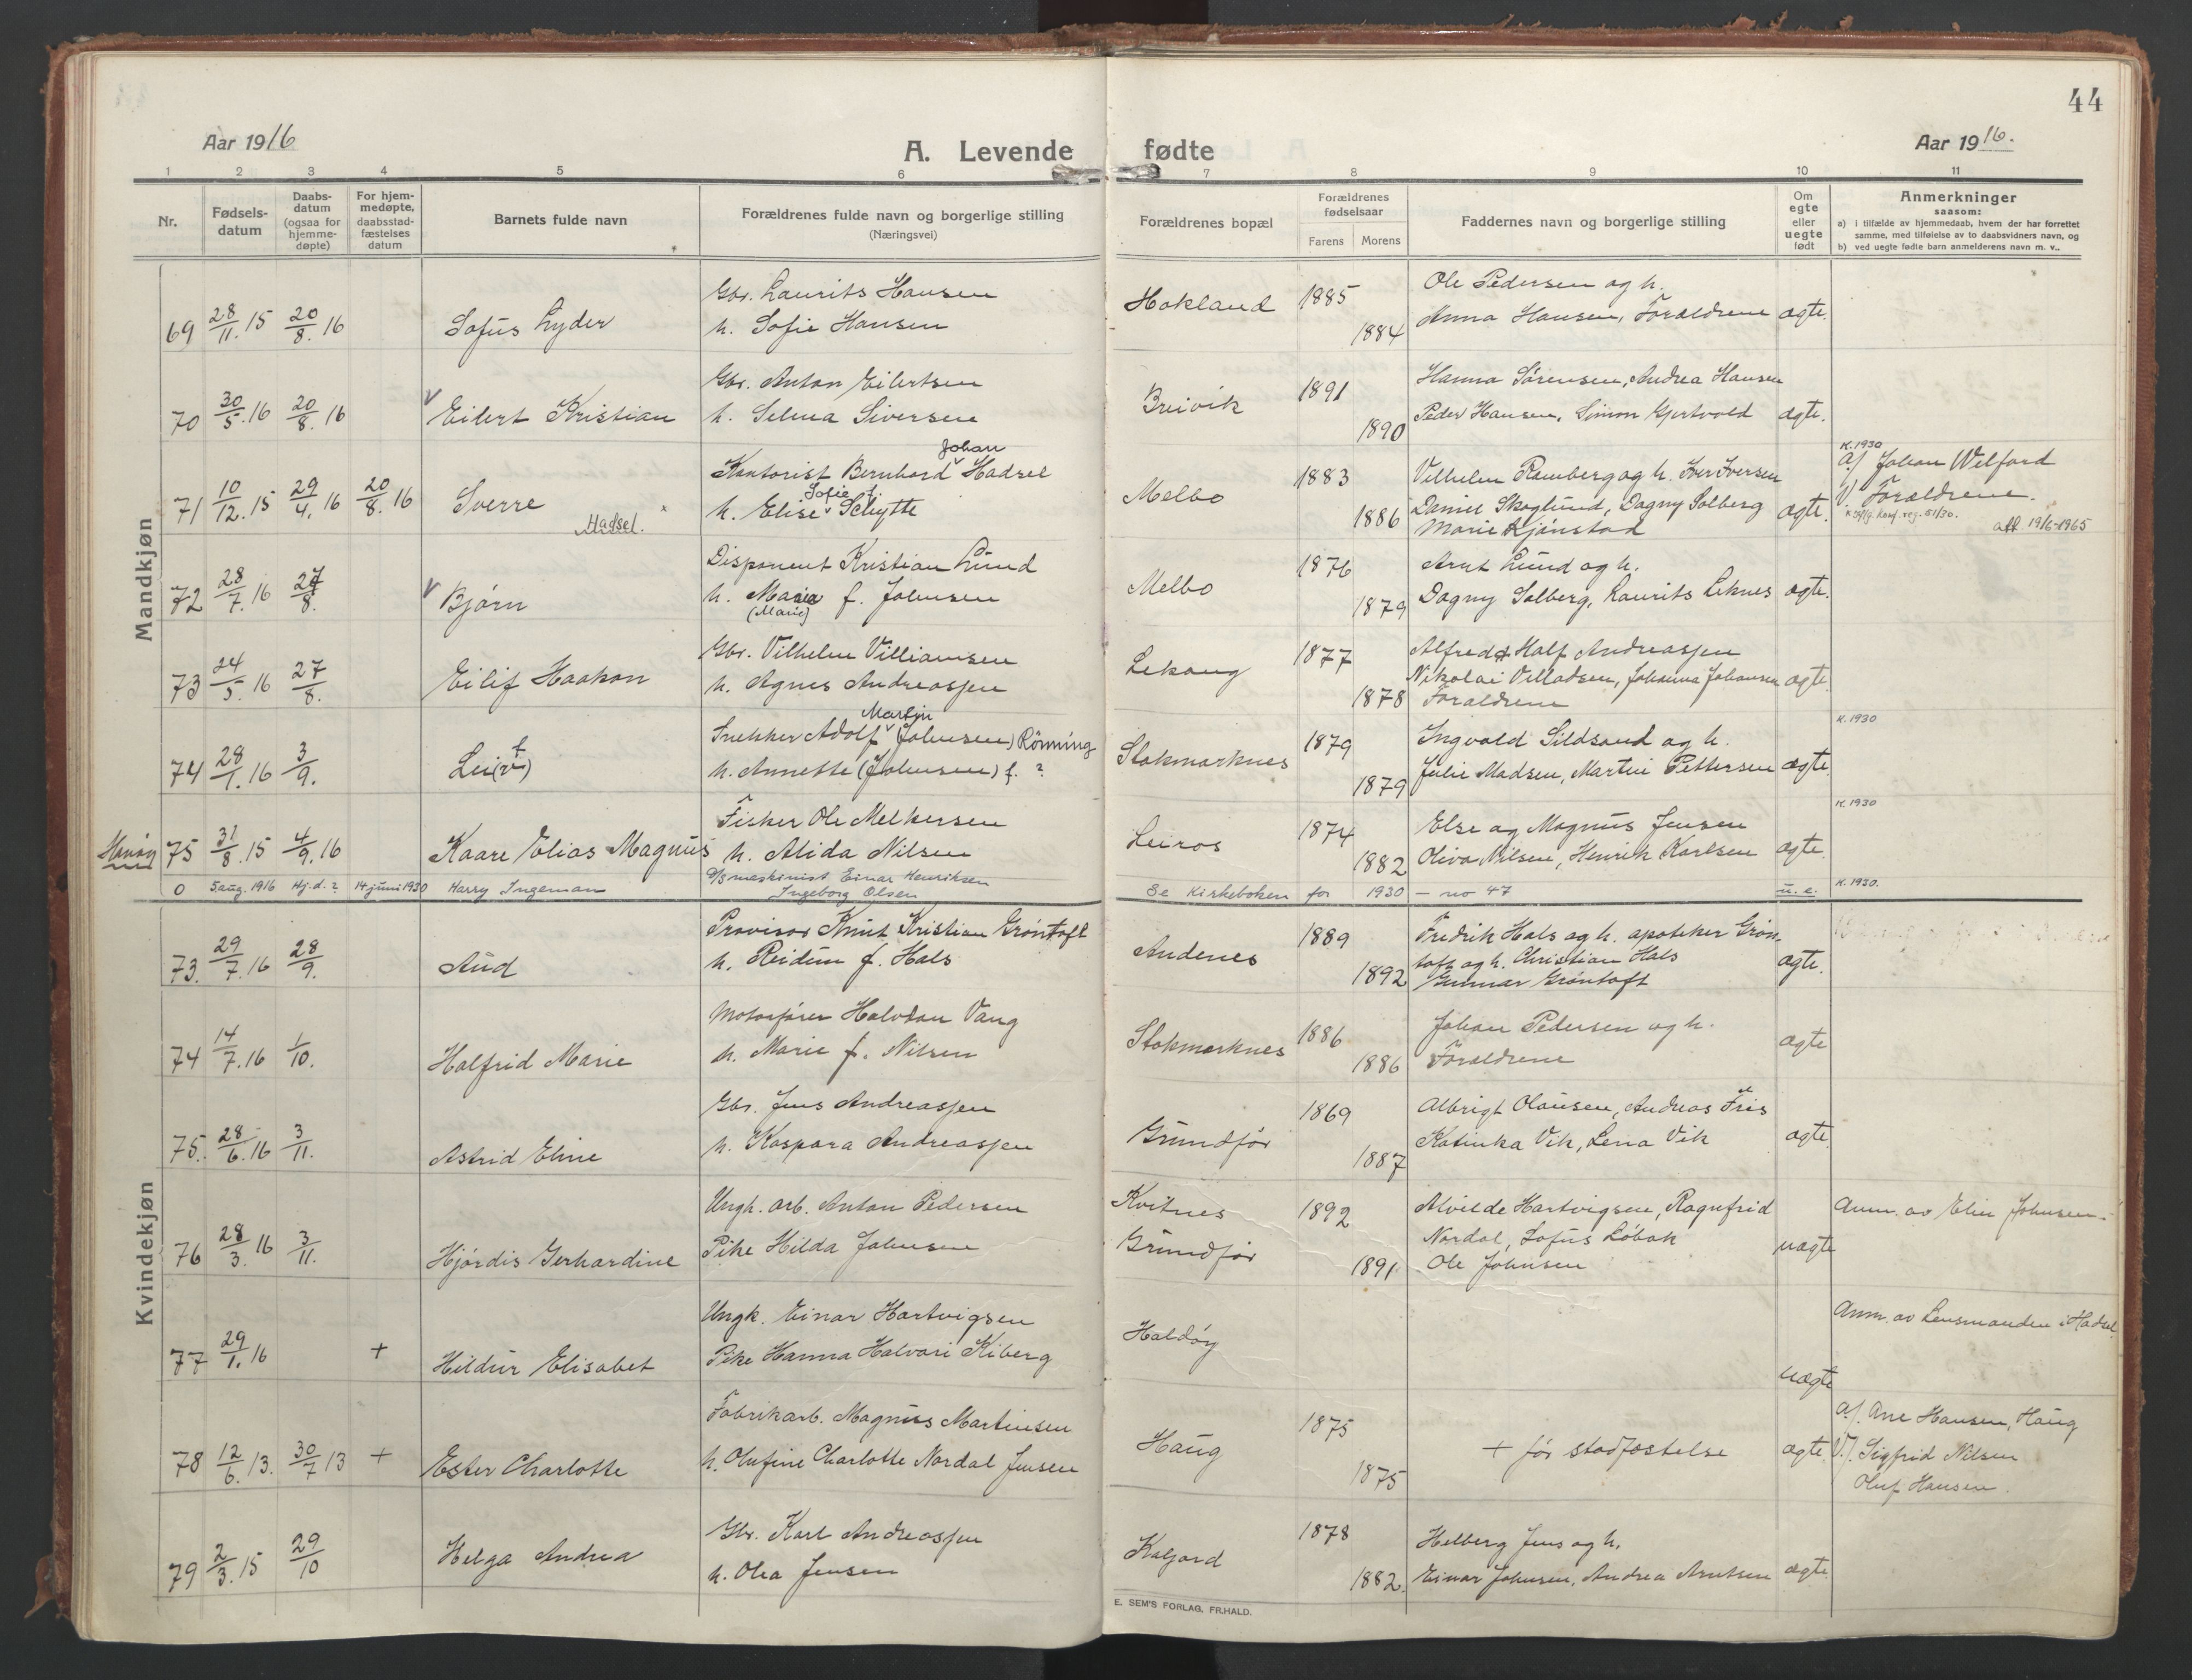 44
Aar 1916
A. Levende fødte
Aar 1916.
1 2 3 4 5 6 7 8 9 10 11
Nr.
Fødsels-
datum
Daabs-
datum
(ogsaa for
hjemme-
døpte)
For hjem-
medøpte,
daabsstad-
fæstelses
datum
Barnets fulde navn
Forældrenes fulde navn og borgerlige stilling
(Næringsvei)
Forældrenes bopæl
Forældrenes
fødselsaar
Farens Morens
Faddernes navn og borgerlige stilling
Om
egte
eller
uegte
født
Anmerkninger
saasom:
a) i tilfælde av hjemmedaab, hvem der har forrettet
samme, med tilføielse av to daabsvidners navn, og
b) ved uegte fødte barn anmelderens navn m. v..
Mandkjøn
69 28/11. 15 20/8. 16 Sofus Lyder
Gbr. Laurits Hansen
h. Sofie Hansen
Hokland 1885 1884
Ole Pedersen og h.
Anna Hansen, Forældrene ægte.
70 30/5. 16 20/8. 16 Eilert Kristian
Gbr. Anton Eilertsen
h. Selma Siversen
Breivik 1891 1890
Hanna Sørensen, Andrea Hansen
Peder Hansen, Simon Gjertvold ægte.
71 10/12. 15 29/4. 16 20/8. 16 Sverre
Hadsel.
Johan
Kontorist Bernhard Hadsel
Sofie f.
h. Elise Schytte
Melbo 1883 1886
Vilhelm Ramberg og h. Iver Iversen
Daniel Skoglund, Dagny Solberg
Marie Kjønstad ægte.
K. 1930
a/ Johan Welford
V. Forældrene.
att. 19/6-1965
72 28/7. 16 27/8. Bjørn
Disponent Kristian Lund
h. Maria f. Johnsen
(Marie)
Melbo 1876 1879
Arnt Lund og h.
Dagny Solberg, Laurits Leknes ægte.
73 24/5. 16 27/8. Eilif Haakon
Gbr. Vilhelm Villiamsen
h. Agnes Andreassen
Lekang 1877 1878
Alfred Half Andreassen
Nikolai Villadsen, Johanna Johansen
Forældrene ægte.
74 28/1. 16 3/9. Lei(v) f
Martin
Snekker Adolf (Johnsen) Rönning
h. Annette (Johnsen) f. ?
Stokmarknes 1879 1879
Ingvald Sildsand og h.
Julie Madsen, Martin Pettersen ægte.
K. 1930
75 31/8. 15 4/9. 16 Kaare Elias Magnus
Fisker Ole Melkersen
h. Alida Nilsen
Leiros 1874 1882
Else og Magnus Jensen
Oliva Nilsen, Henrik Karlsen ægte.
K. 1930
0 5 aug. 1916 Hj. d. ? 14 juni 1930 Harry Ingeman
D/S maskinist Einar Henriksen
Ingeborg Olsen
Se Kirkeboken for 1930 – no 47 u. e. K. 1930.
Kvindekjøn
73. 29/7. 16 28/9. Aud
Provisor Knut Kristian Grøntoft
h. Reidun f. Hals
Andenes 1889 1892
Fredrik Hals og h. apoteker Grøn-
toft og h. Christian Hals
Gunnar Grøntoft ægte.
74 14/7. 16 1/10. Halfrid Marie
Motorfører Halvdan Vang
h. Marie f. Nilsen
Stokmarknes 1886 1886
Johan Pedersen og h.
Forældrene ægte
75. 28/6. 16 3/11. Astrid Eline
Gbr. Jens Andreassen
h. Kaspara Andreassen
Grundfør 1869 1887
Albrigt Olausen, Andreas Friis
Katinka Vik, Lena Vik ægte.
76 28/3. 16 3/11. Hjørdis Gerhardine
Ungk. arb. Anton Pedersen
Pike Hilda Johnsen
Kvitnes
Grundfør 1892 1891
Alvilde Hartvigsen, Ragnfrid
Nordal, Sofus Løbak
Ole Johnsen uægte
Anm. av Elin Johnsen.
77 29/1. 16 + Hildur Elisabet
Ungk. Einar Hartvigsen
Pike Hanna Halvari Kiberg
Haldøy
uægte
Anm. av Lensmanden i Hadsel.
78 12/6. 13. 30/7 13 + Ester Charlotte
Fabrikarb. Magnus Martinsen
h. Olufine Charlotte Nordal Jensen
Haug 1875 1875
+ før stadfæstelse ægte.
a/. Ane Hansen, Haug
V/. Sigfrid Nilsen
Oluf Hansen.
79 2/3. 15 29/10 Helga Andrea
Gbr. Karl Andreassen
h. Olea Jensen
Kaljord 1878 1882.
Helberg Jens og h.
Einar Johnsen, Andrea Arntsen ægte.
E. SEM'S FORLAG, FR.HALD.